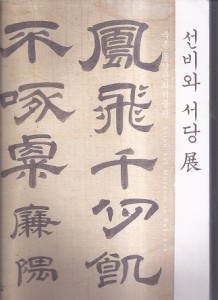 선비와 서당 展
鳳飛千仞飢
不啄粟廉隅